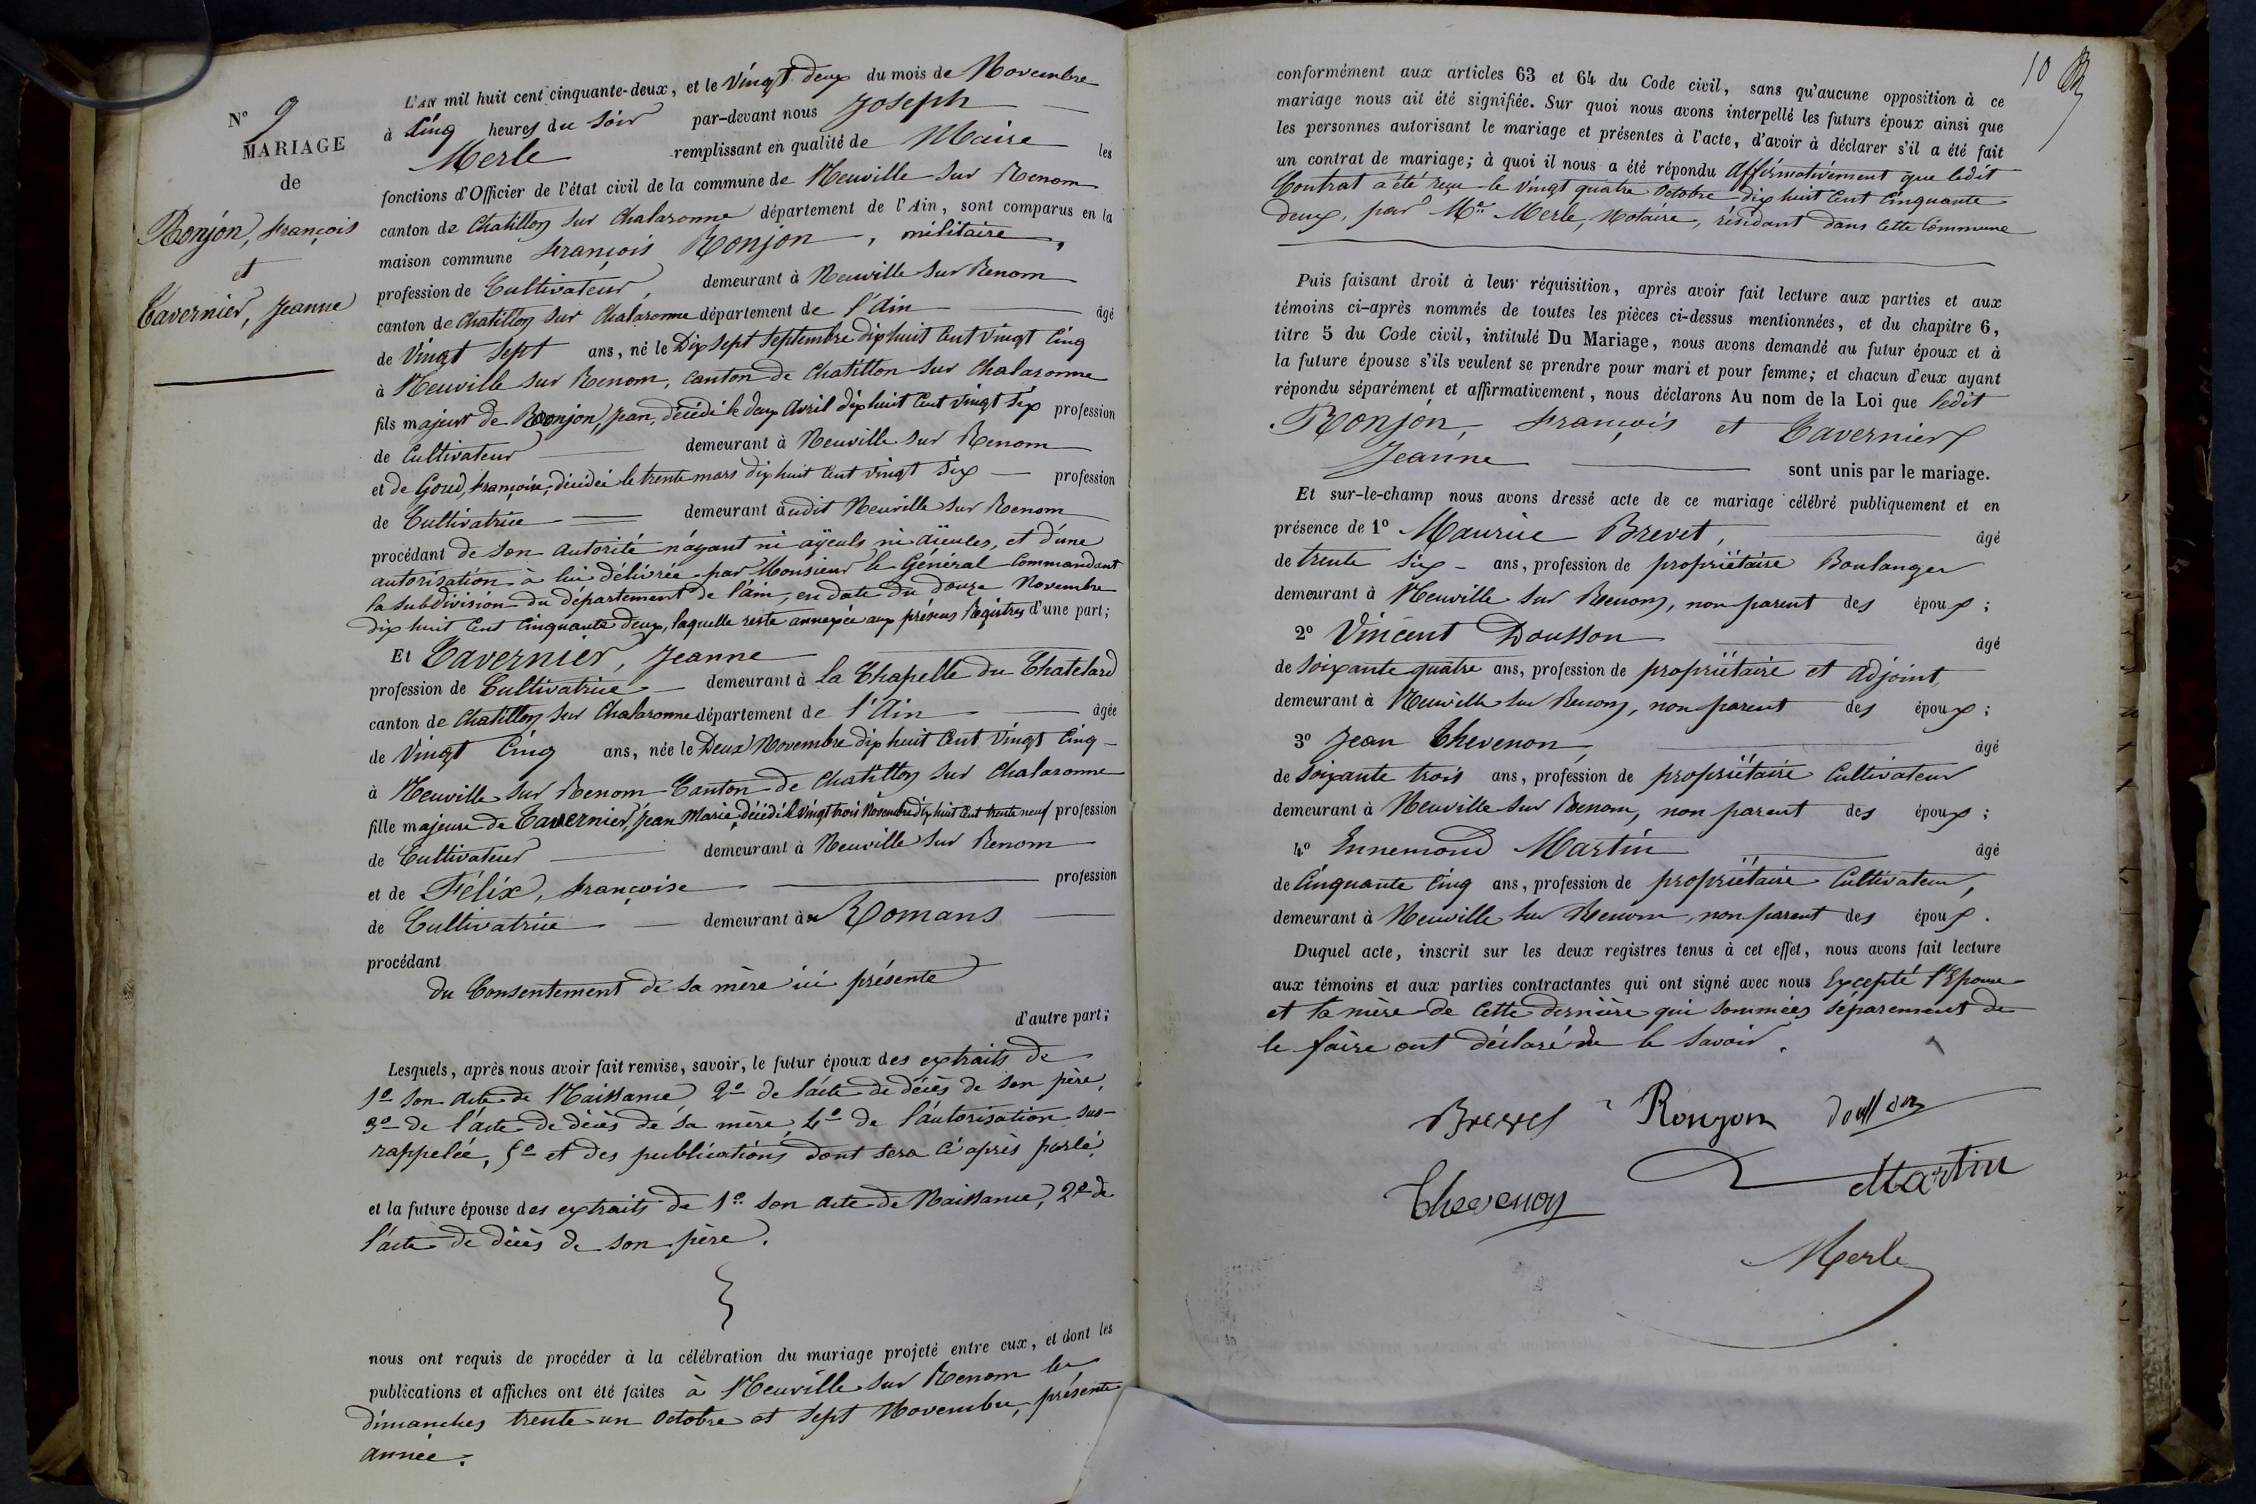 N° 9
MARIAGE
de
Ronjon, françois
et
Tavernier, Jeanne
L'AN mil huit cent cinquante-deux, et le Vingt deux du mois de Novembre
à Cinq heures du soir par-devant nous Joseph
Merle remplissant en qualité de Maire les
fonctions d'Officier de l'état civil de la commune de Neuville sur Renom
canton de Chatillon sur Chalaronne département de l'Ain, sont comparus en la
maison commune françois Ronjon, militaire,
profession de Cultivateur, demeurant à Neuville sur Renom
canton de Chatillon sur Chalaronne département de l'Ain âgé
de Vingt Sept ans, né le Dix sept Septembre dix huit Cent vingt Cinq
à Neuville sur Renom, Canton de Chatillon sur Chalaronne
fils majeur de Ronjon, Jean, décédé le deux Avril dix huit Cent vingt six profession
de Cultivateur demeurant à Neuville sur Renom
et de Goud, françoise, décédée le trente mars dix huit Cent vingt six profession
de Cultivatrice demeurant audit Neuville sur Renom
procédant de son autorité n'ayant ni aÿeuls ni aïeules, et d'une
autorisation à lui délivrée par Monsieur le Général Commandant
la subdivision du département de l'ain, en date du douze Novembre
dix huit Cent Cinquante deux, laquelle reste annexée aux présens Registres d'une part;
Et Tavernier, Jeanne
profession de Cultivatrice demeurant à La Chapelle du Chatelard
canton de Chatillon sur Chalaronne département de l'Ain âgée
de Vingt Cinq ans, née le Deux Novembre dix huit Cent Vingt Cinq
à Neuville sur Renom Canton de Chatillon sur Chalaronne
fille majeure de Tavernier, Jean Marie, décédé le vingt trois Novembre dix huit Cent trente neuf profession
de Cultivateur demeurant à Neuville sur Renom
et de Félix, françoise profession
de Cultivatrice demeurant à Romans
procédant
du Consentement de sa mère ici présente
d'autre part;
Lesquels, après nous avoir fait remise, savoir, le futur époux des extraits de
1° son acte de Naissance 2° de l'acte de décès de son père,
3° de l'acte de décès de sa mère 4° de l'autorisation sus-
rappelée, 5° et des publications dont sera ci après parlé,
et la future épouse des extraits de 1° son acte de Naissance, 2° de
l'acte de décès de son père.
nous ont requis de procéder à la célébration du mariage projeté entre eux, et dont les
publications et affiches ont été faites à Neuville sur Renom les
dimanches trente un Octobre et sept Novembre, présente
année.
10
conformément aux articles 63 et 64 du Code civil, sans qu'aucune opposition à ce
mariage nous ait été signifiée. Sur quoi nous avons interpellé les futurs époux ainsi que
les personnes autorisant le mariage et présentes à l'acte, d'avoir à déclarer s'il a été fait
un contrat de mariage; à quoi il nous a été répondu Affirmativement que ledit
Contrat a été reçu le vingt quatre Octobre dix huit Cent Cinquante
deux, par Me Merle, Notaire, résidant dans cette Commune
Puis faisant droit à leur réquisition, après avoir fait lecture aux parties et aux
témoins ci-après nommés de toutes les pièces ci-dessus mentionnées, et du chapitre 6,
titre 5 du Code civil, intitulé Du Mariage, nous avons demandé au futur époux et à
la future épouse s'ils veulent se prendre pour mari et pour femme; et chacun d'eux ayant
répondu séparément et affirmativement, nous déclarons Au nom de la Loi que ledit
Ronjon, françois et Tavernier
Jeanne sont unis par le mariage.
Et sur-le-champ nous avons dressé acte de ce mariage célébré publiquement et en
présence de 1° Maurice Brevet, âgé
de trente six ans, profession de propriétaire Boulanger
demeurant à Neuville sur Renom, non parent des époux;
2° Vincent Dousson âgé
de soixante quatre ans, profession de propriétaire et adjoint,
demeurant à Neuville sur Renom, non parent des époux;
3° Jean Thevenon, âgé
de soixante trois ans, profession de propriétaire Cultivateur
demeurant à Neuville sur Renom, non parent des époux;
4° Ennemond Martin âgé
de Cinquante Cinq ans, profession de propriétaire Cultivateur,
demeurant à Neuville sur Renom, non parent des époux.
Duquel acte, inscrit sur les deux registres tenus à cet effet, nous avons fait lecture
aux témoins et aux parties contractantes qui ont signé avec nous Excepté l'Epouse
et la mère de cette dernière qui sommées séparement de
le faire ont déclaré ne le savoir.
Brevet Ronjon dousson
Thevenon Martin
Merle